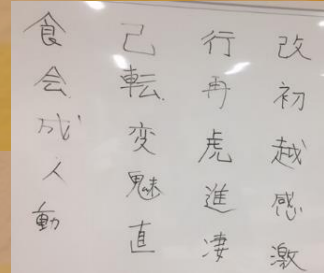 改初越感激
行再虎進凄
己転変魅直
食会成人動